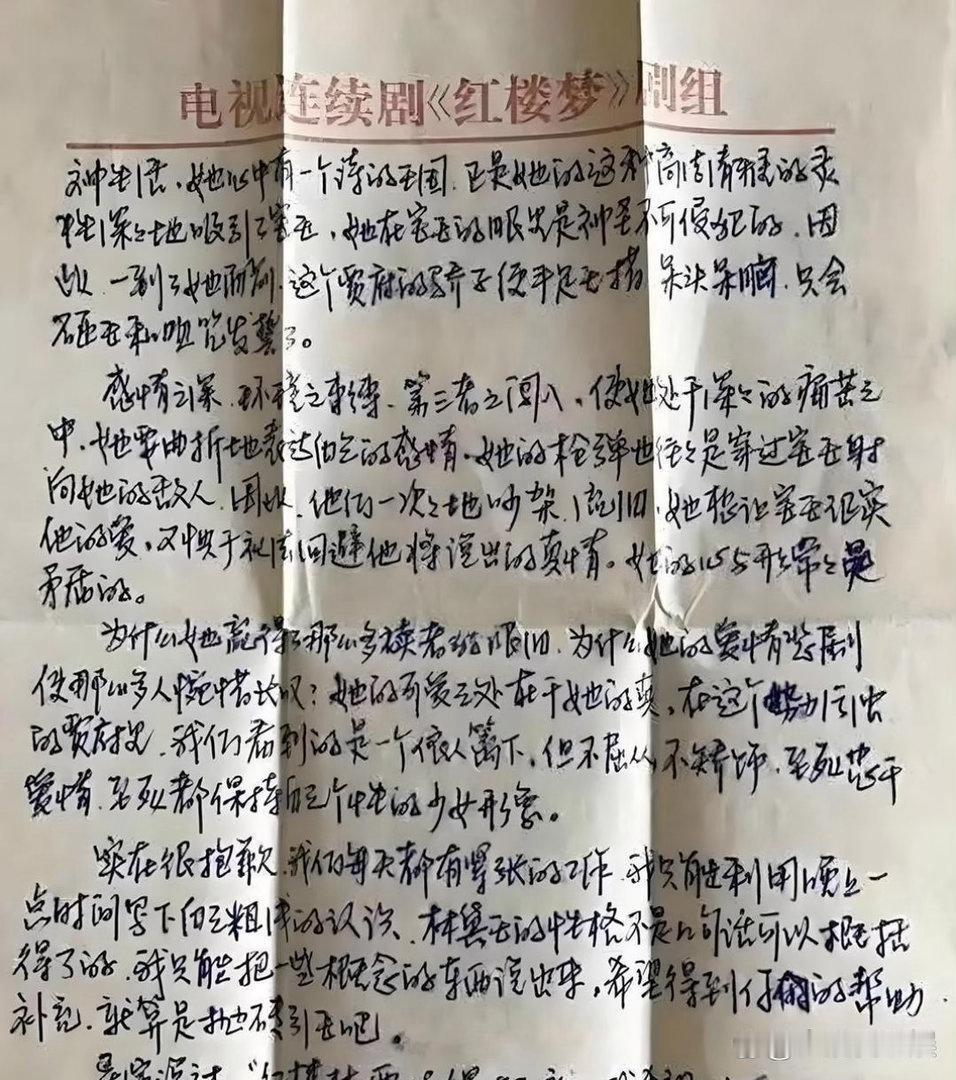 电视连续剧《红楼梦》剧组
神生活，她心中有一个诗的王国，正是她的这种高洁清雅的灵
性深深地吸引了宝玉，她在宝玉的眼里是神圣不可侵犯的，因
此，一到了她面前，这个贾府的骄子便手足无措 呆头呆脑，只会
感情之深，环境之束缚，第三者之闯入，使她处于深深的痛苦之
中，她要曲折地表达自己的感情，她的枪弹也往往是穿过宝玉射
向她的敌人，因此，他们一次次地吵架，流泪，她想让宝玉证实
他的爱，又惧于礼法回避他将说出的真情。她的心与形常常是
矛盾的。
为什么她赢得了那么多读者的眼泪，为什么她的爱情悲剧
使那么多人惋惜长叹？她的可爱之处在于她的真，在这个势力
的贾府里，我们看到的是一个依人篱下，但不屈从，不矫饰，至死忠于
爱情，至死都保持自己个性的少女形象。
实在很抱歉，我们每天都有紧张的工作，我只能利用晚上一
点时间写下自己粗浅的认识，林黛玉的性格不是几句话可以概括
得了的，我只能把一些概念的东西说出来，希望得到你们的帮助
补充，就算是抛砖引玉吧。